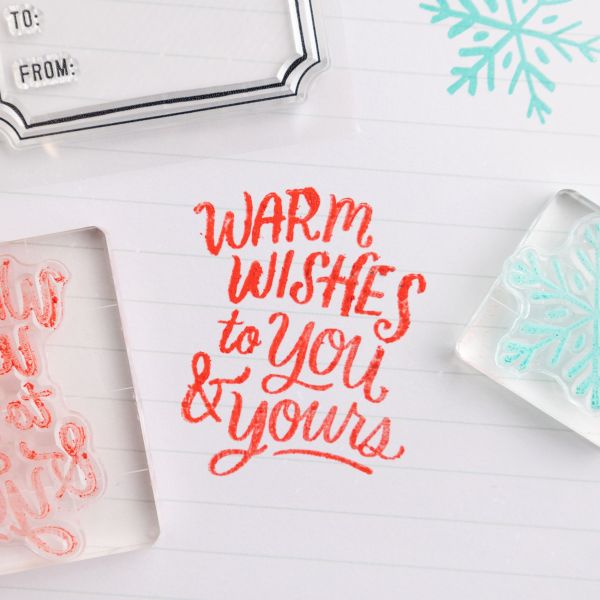 TO:
FROM:
WARM
WISHES
to You
& Yours